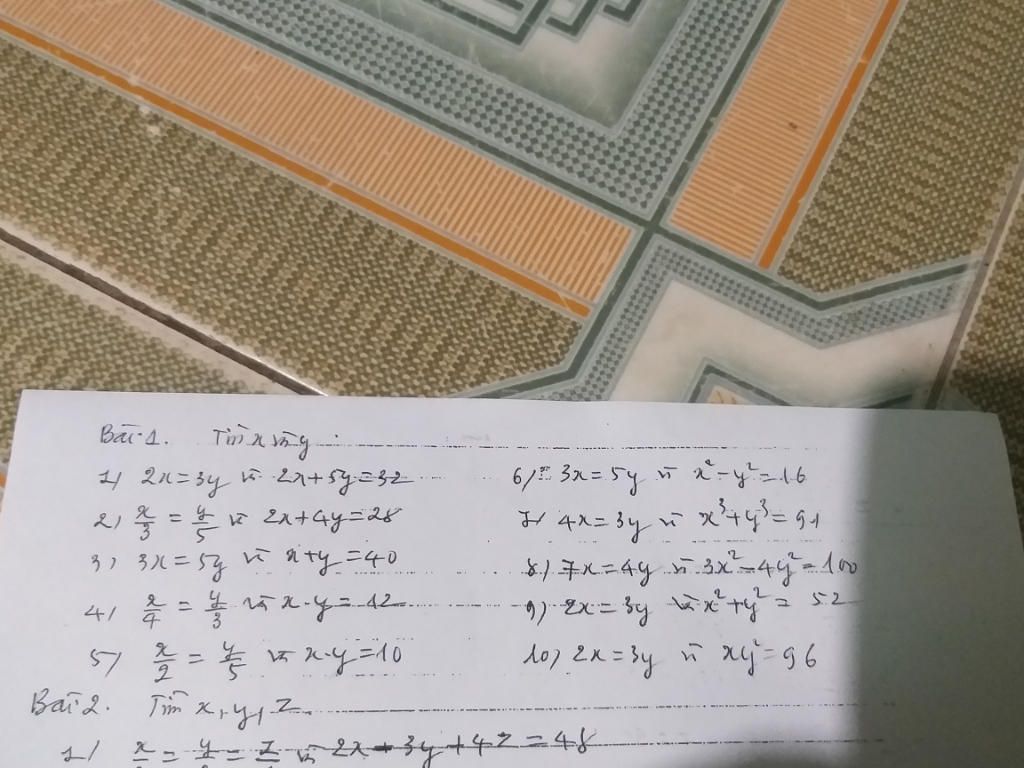 Bài 1. Tìm x và y :
1) 2x = 3y và 2x + 5y = 32
2) x/3 = y/5 và 2x + 4y = 28
3) 3x = 5y và x + y = 40
4) x/4 = y/3 và x - y = 12
5) x/2 = y/5 và x - y = 10
6) 3x = 5y và x² - y² = 16
7) 4x = 3y và x³ + y³ = 91
8) 7x = 4y và 3x² - 4y² = 100
9) 2x = 3y và x² + y² = 52
10) 2x = 3y và xy² = 96
Bài 2. Tìm x, y, z.
1) x = y = z và 2x + 3y + 4z = 48